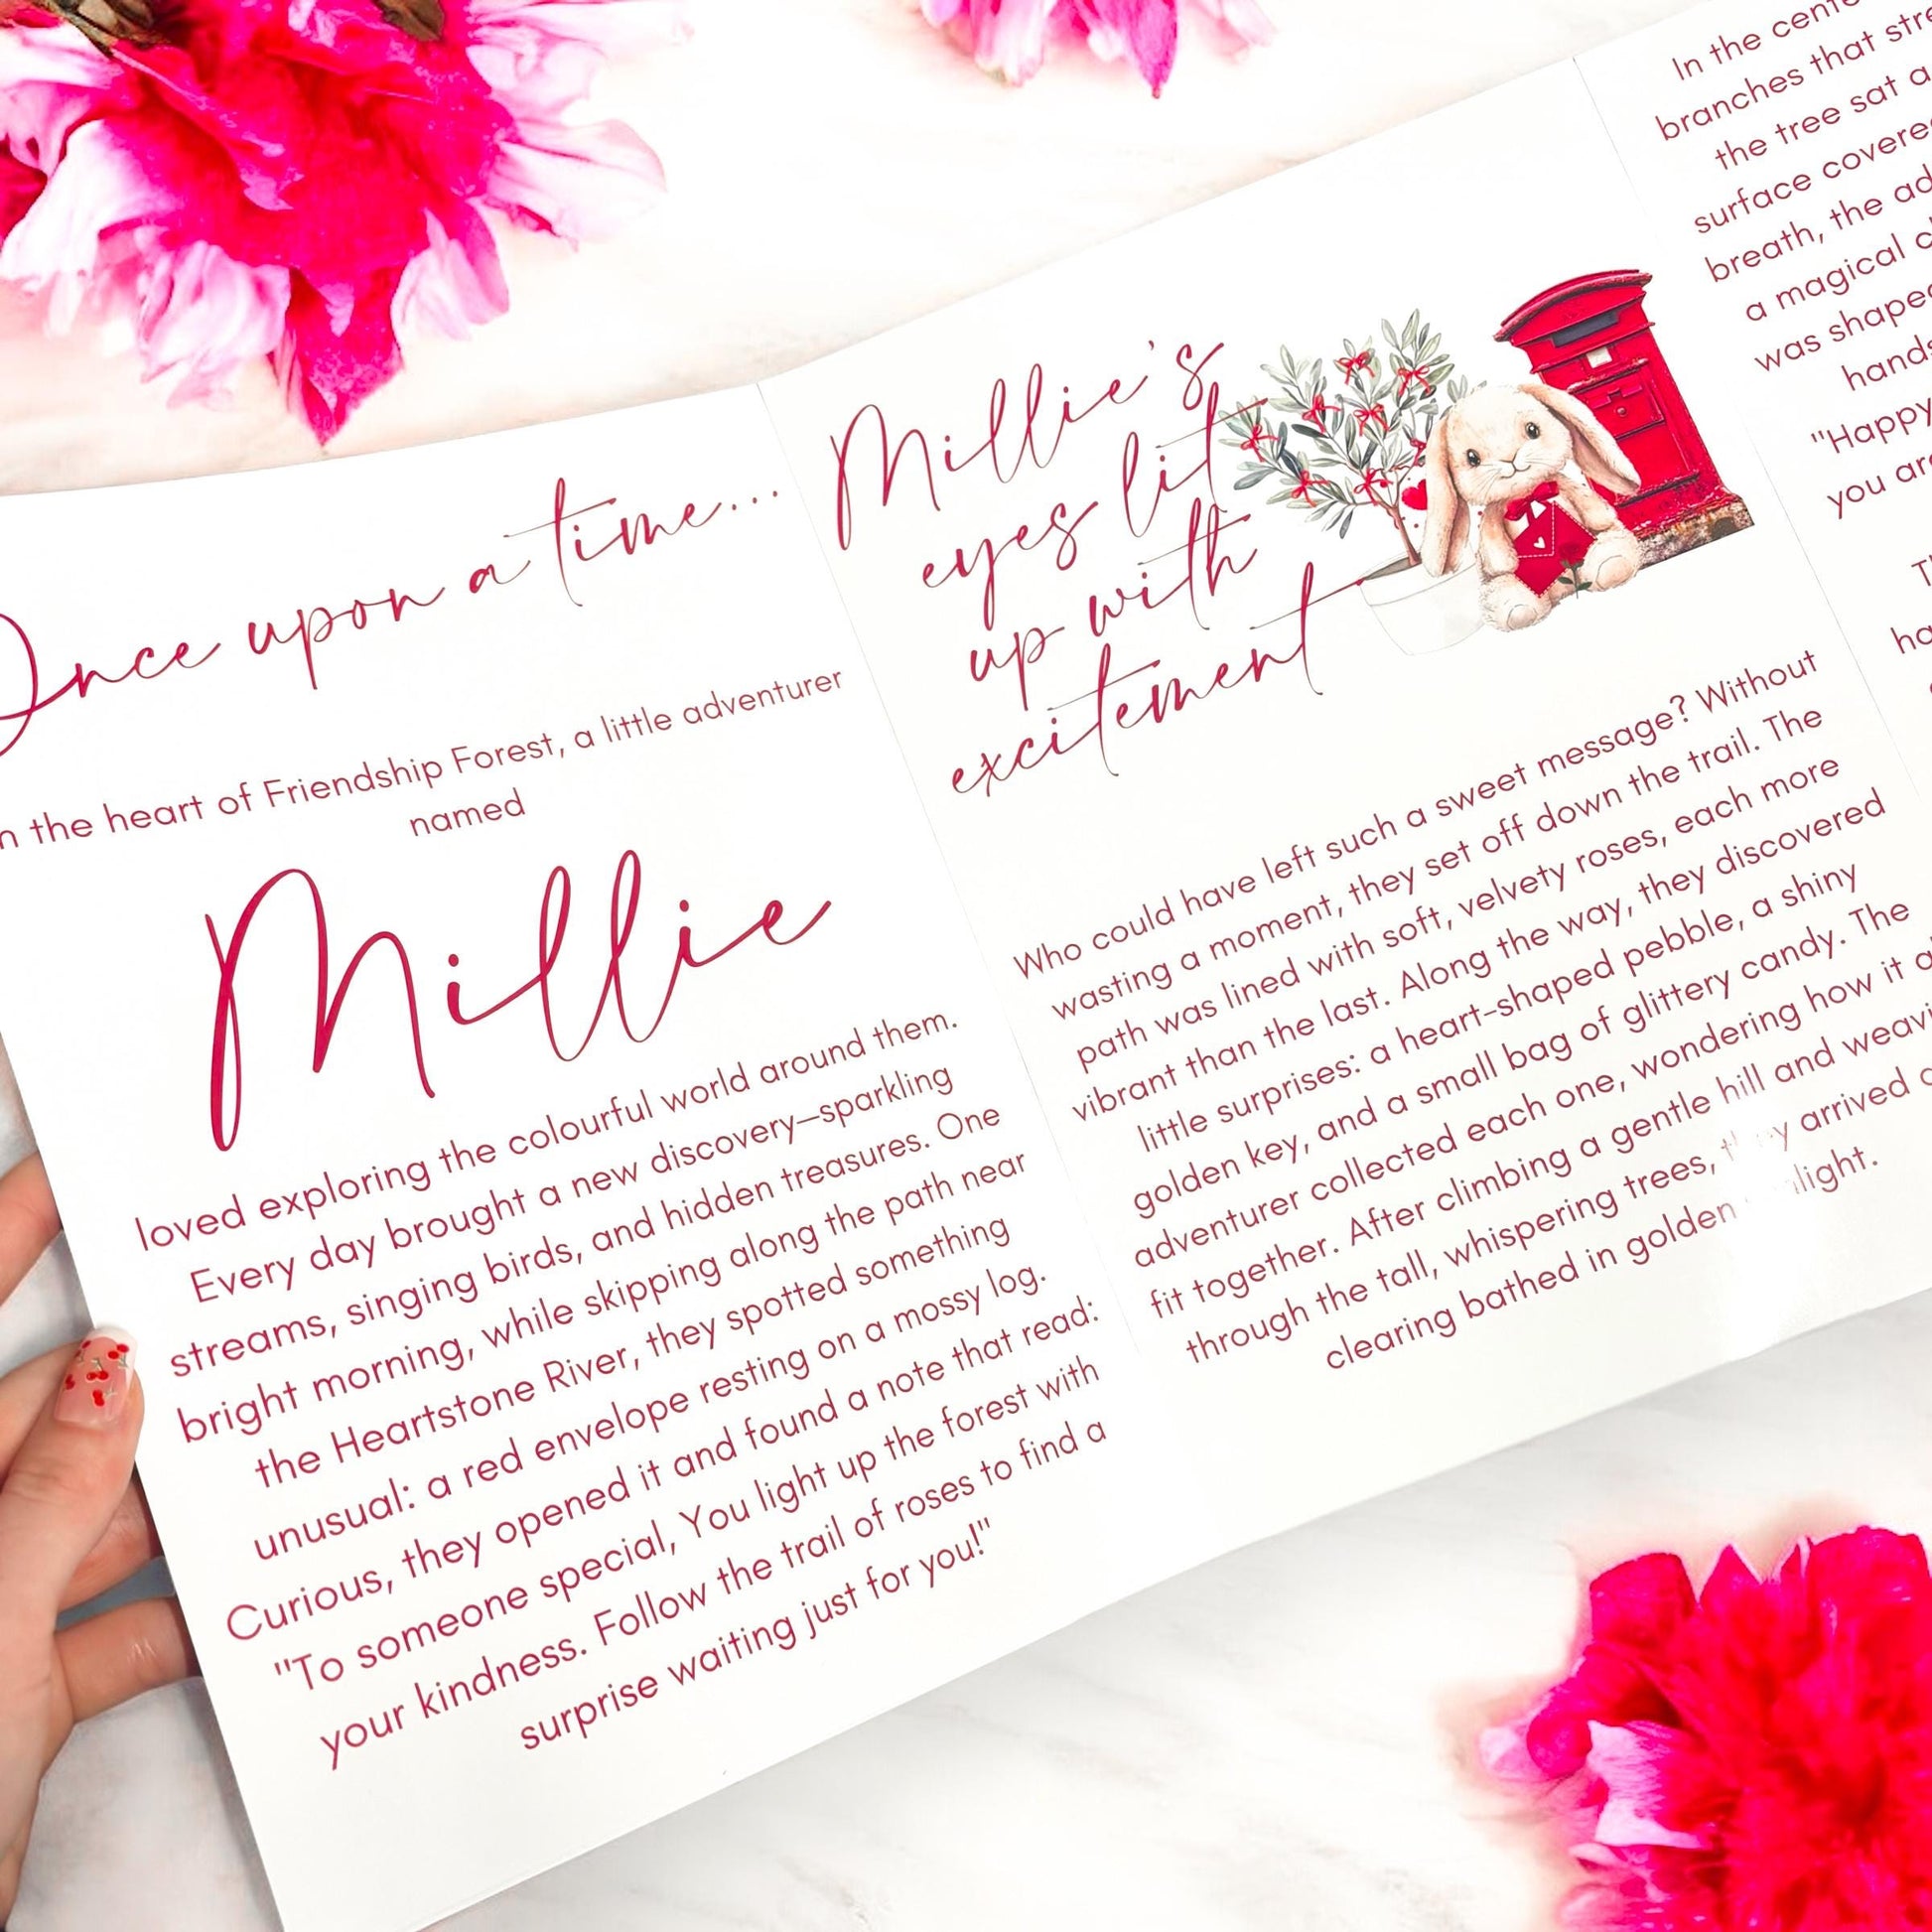 Once upon a time...
the heart of Friendship Forest, a little adventurer
named
Millie
loved exploring the colourful world around them.
Every day brought a new discovery—sparkling
streams, singing birds, and hidden treasures. One
bright morning, while skipping along the path near
the Heartstone River, they spotted something
unusual: a red envelope resting on a mossy log.
Curious, they opened it and found a note that read:
"To someone special, You light up the forest with
your kindness. Follow the trail of roses to find a
surprise waiting just for you!"
Millie's
eyes lit
up with
excitement
Who could have left such a sweet message? Without
wasting a moment, they set off down the trail. The
path was lined with soft, velvety roses, each more
vibrant than the last. Along the way, they discovered
little surprises: a heart-shaped pebble, a shiny
golden key, and a small bag of glittery candy. The
adventurer collected each one, wondering how it
fit together. After climbing a gentle hill and
through the tall, whispering trees, arrived
clearing bathed in golden
In the
branches that
the tree sat a
surface
breath, the
a magical
was
"Happy
you